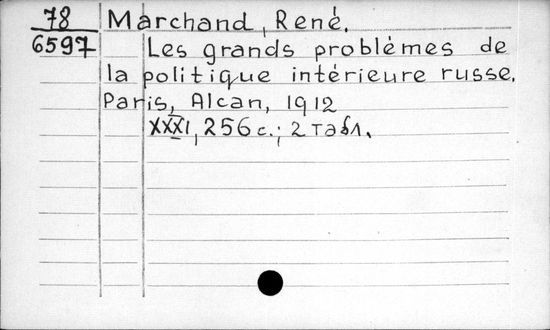 78 Marchand, René.
6597 Les grands problèmes de
la politique intérieure russe.
Paris, Alcan, 1912
XXXI, 256 с.; 2 табл.